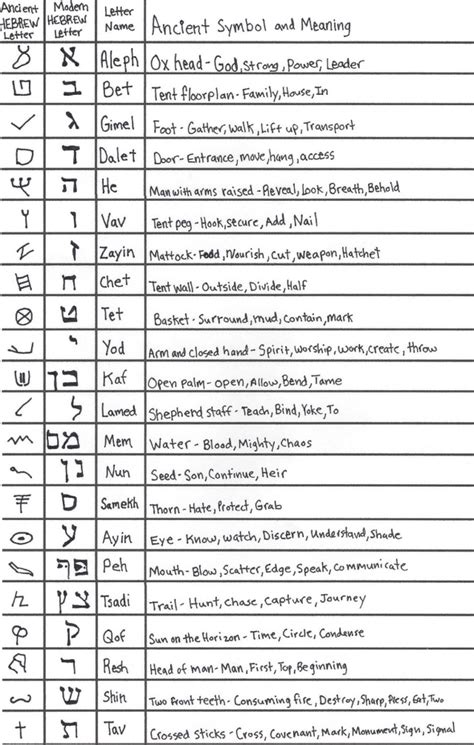 Ancient HEBREW Letter Modern HEBREW Letter Letter Name Ancient Symbol and Meaning
א Aleph Ox head - God, strong, Power, Leader
ב Bet Tent floorplan - Family, House, In
ג Gimel Foot - Gather, walk, Lift up, Transport
ד Dalet Door - Entrance, move, hang, access
ה He Man with arms raised - Reveal, Look, Breath, Behold
ו Vav Tent peg - Hook, secure, Add, Nail
ז Zayin Mattock - Food, Nourish, Cut, weapon, Hatchet
ח Chet Tent wall - Outside, Divide, Half
ט Tet Basket - Surround, mud, contain, mark
י Yod Arm and closed hand - Spirit, Worship, Work, create, throw
כך Kaf Open palm - open, Allow, Bend, Tame
ל Lamed Shepherd staff - Teach, Bind, Yoke, To
מם Mem Water - Blood, Mighty, Chaos
נן Nun Seed - Son, Continue, Heir
ס Samekh Thorn - Hate, Protect, Grab
ע Ayin Eye - Know, watch, Discern, Understand, Shade
פף Peh Mouth - Blow, Scatter, Edge, Speak, Communicate
צץ Tsadi Trail - Hunt, Chase, Capture, Journey
ק Qof Sun on the Horizon - Time, Circle, Condense
ר Resh Head of man - Man, First, Top, Beginning
ש Shin Two front teeth - Consuming fire, Destroy, Sharp, Press, Eat, Two
ת Tav Crossed sticks - Cross, Covenant, Mark, Monument, Sign, Signal